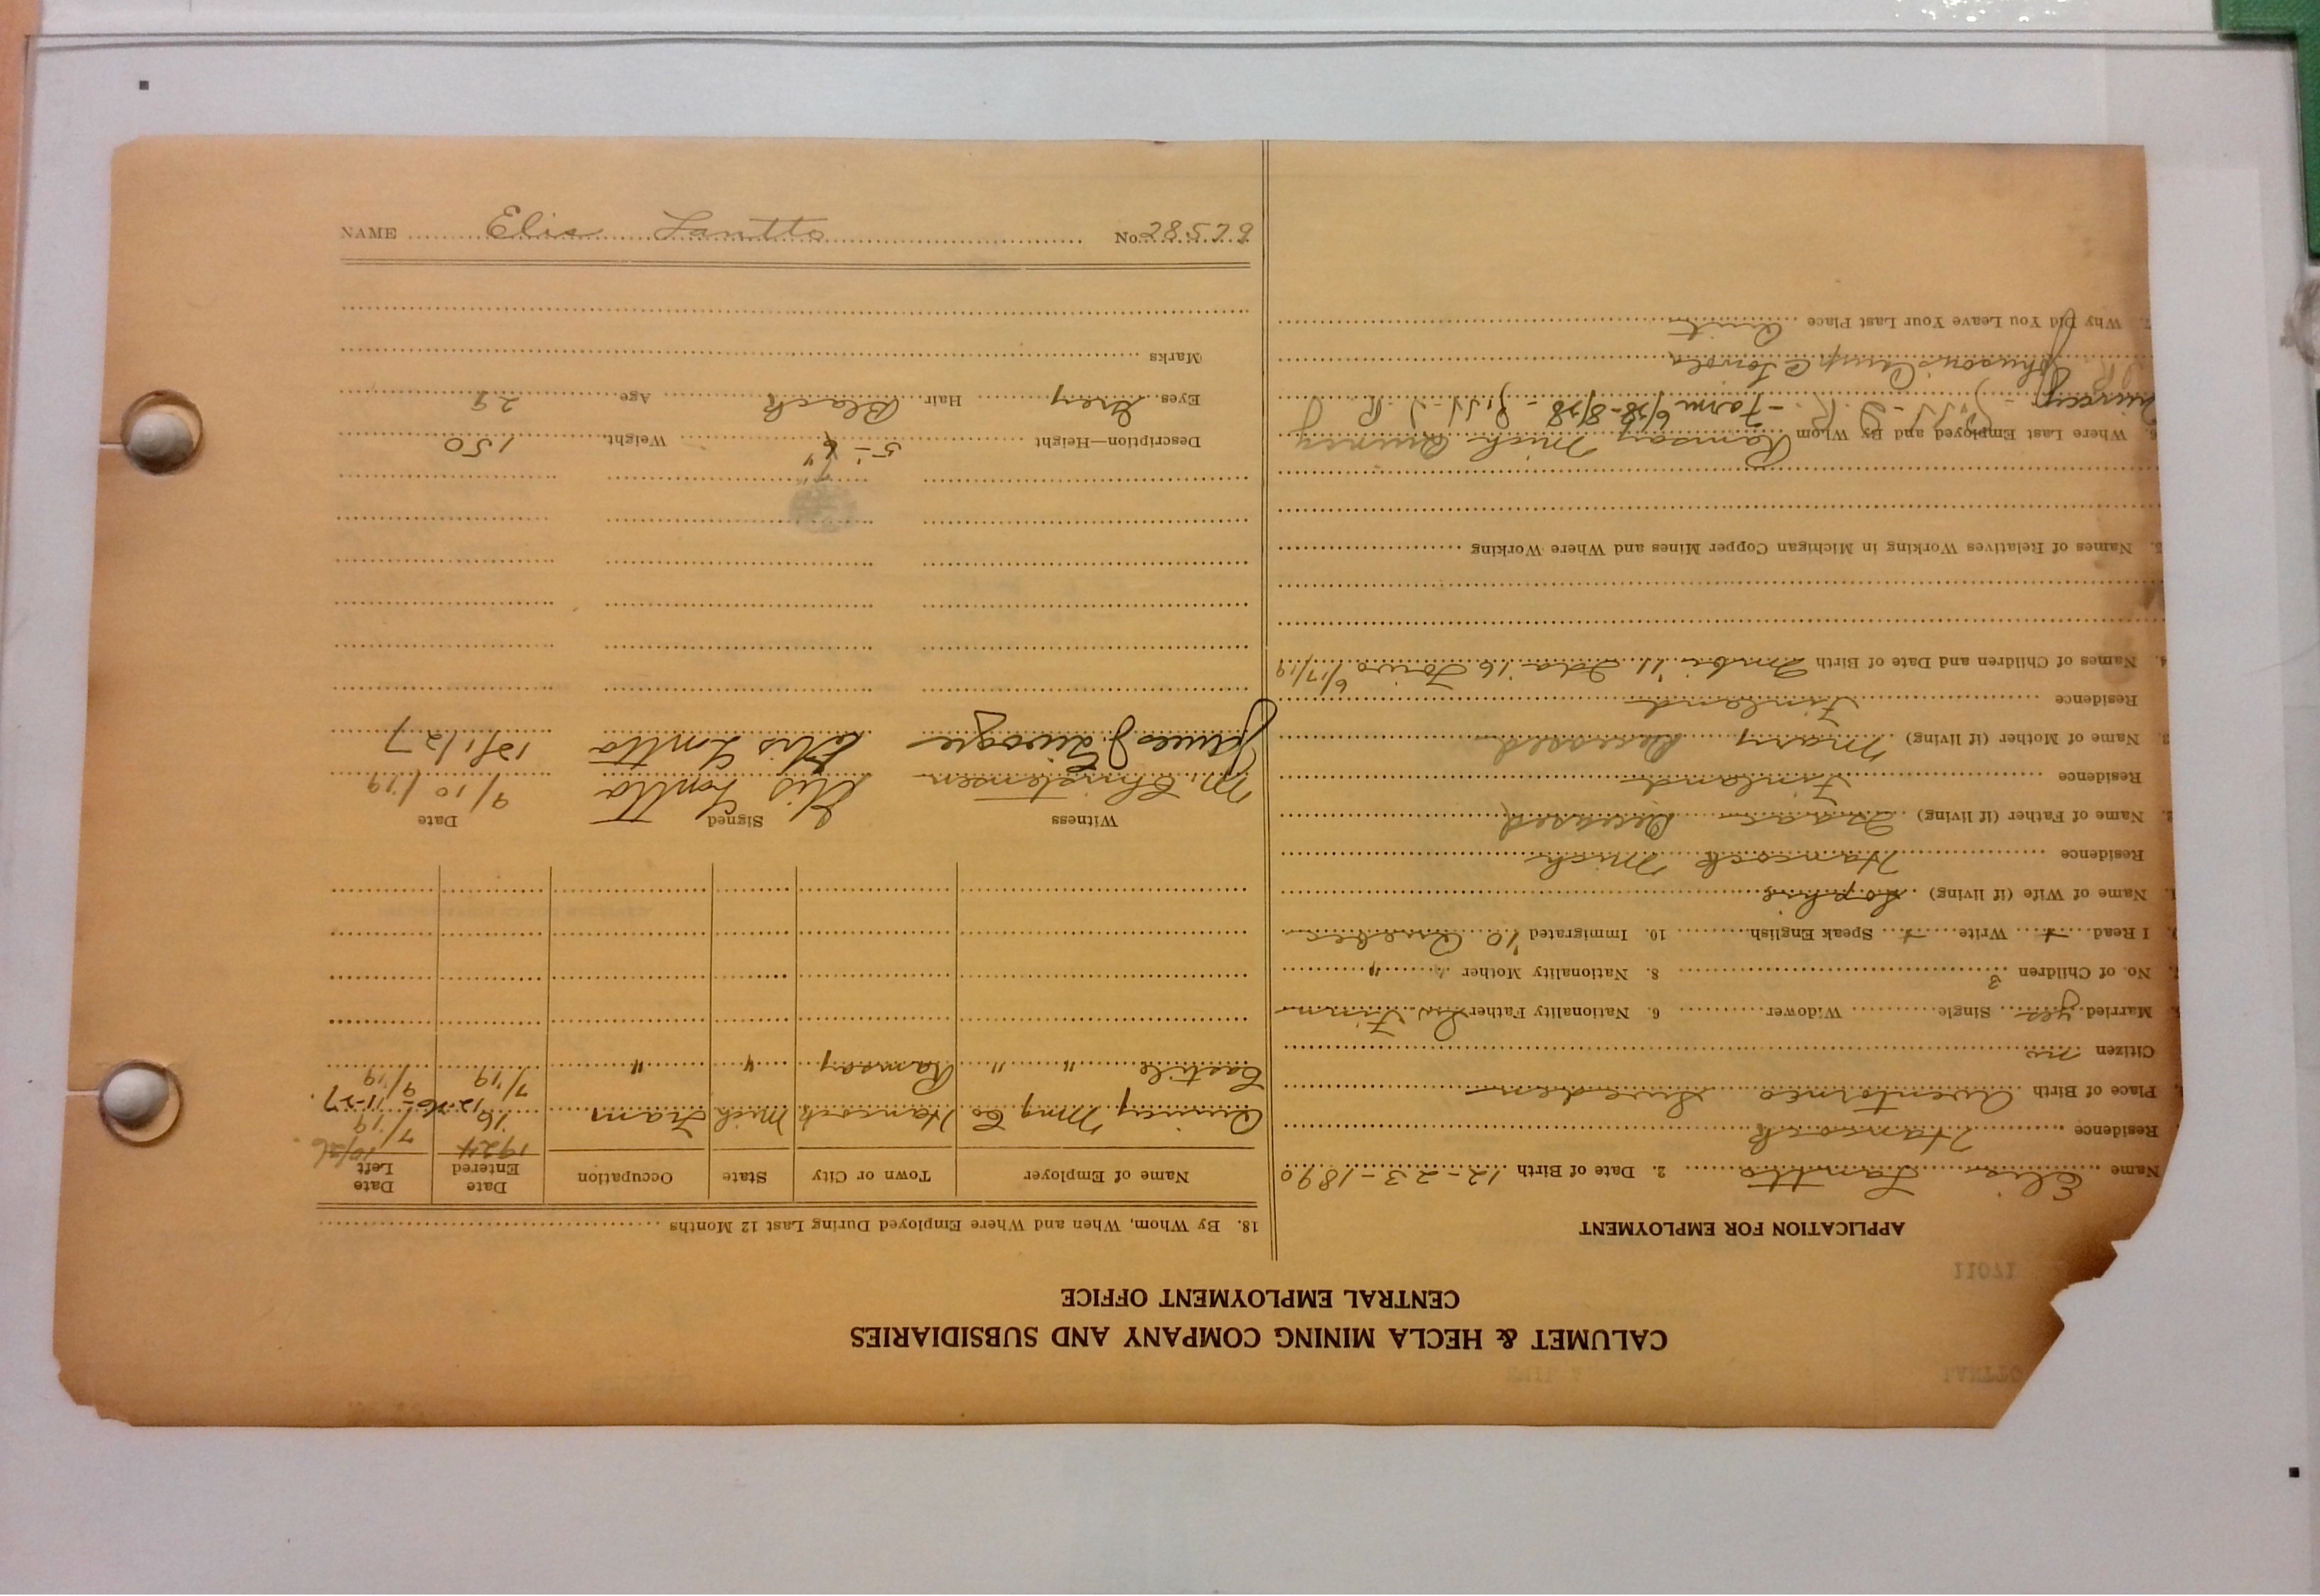 CALUMET & HECLA MINING COMPANY AND SUBSIDIARIES
CENTRAL EMPLOYMENT OFFICE
APPLICATION FOR EMPLOYMENT
Name Elis Lantto 2. Date of Birth 12-23-1890
Residence Hancock
Place of Birth Sweden
Citizen no
Married yes Single Widower 6. Nationality Father Finn
No. of Children 3 8. Nationality Mother " "
9. I Read + Write + Speak English 10. Immigrated '10 Quebec
1. Name of Wife (if living) Sophie
Residence Hancock Mich
2. Name of Father (if living) Isaac Deceased
Residence Finland
3. Name of Mother (if living) Mary Deceased
Residence Finland
4. Names of Children and Date of Birth '11 Ida '16 Toivo 6/17/19
5. Names of Relatives Working in Michigan Copper Mines and Where Working
6. Where Last Employed and By Whom Ramsay Mich Quincy
Quincy - Farm 6/28-8/28
Johnson's Camp @ Toivola
7. Why Did You Leave Your Last Place Quit
18. By Whom, When and Where Employed During Last 12 Months
Name of Employer Town or City State Occupation Date Entered Date Left
1924 10/26
Quincy Mng Co Hancock Mich Tram '16 7/19
12-26 11-27
Castile " " Ramsay " " 7/19 9/19
Witness Signed Date
M. Christensen Elis Lontto 9/10/19
James J. Elis Lontto 12/1/27
Description—Height 5-6" 7" Weight 150
Eyes Grey Hair Black Age 29
Marks
NAME Elis Lantto No. 28579
17011